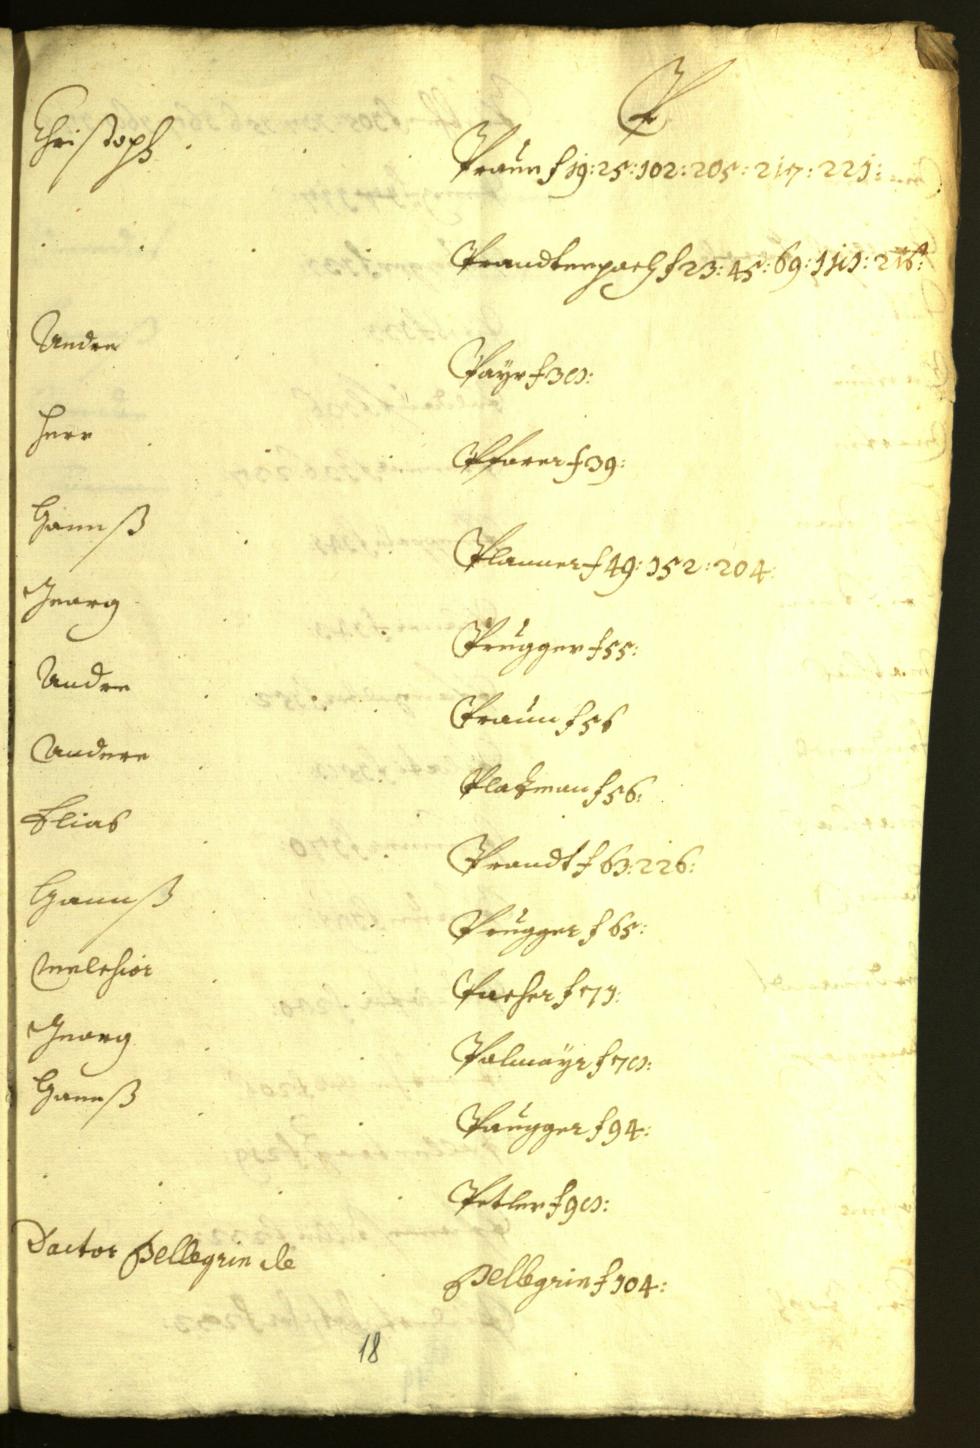 P
Christoph Praun f 19: 25: 102: 205: 217: 221:
Prandtenpach f 23: 45: 69: 118: 216:
Andre Payr f 38:
Herr Pfarer f 39:
Hannß Planner f 49: 152: 204
Georg Prugger f 55:
Andre Praun f 56
Andere Plazman f 56:
Elias Prandt f 63: 226:
Hannß Prugger f 65:
Melchior Pacher f 77:
Georg Palmayr f 78:
Hannß Paugger f 94:
Petler f 98:
Doctor Pellegrin de Pellegrin f 104:
18